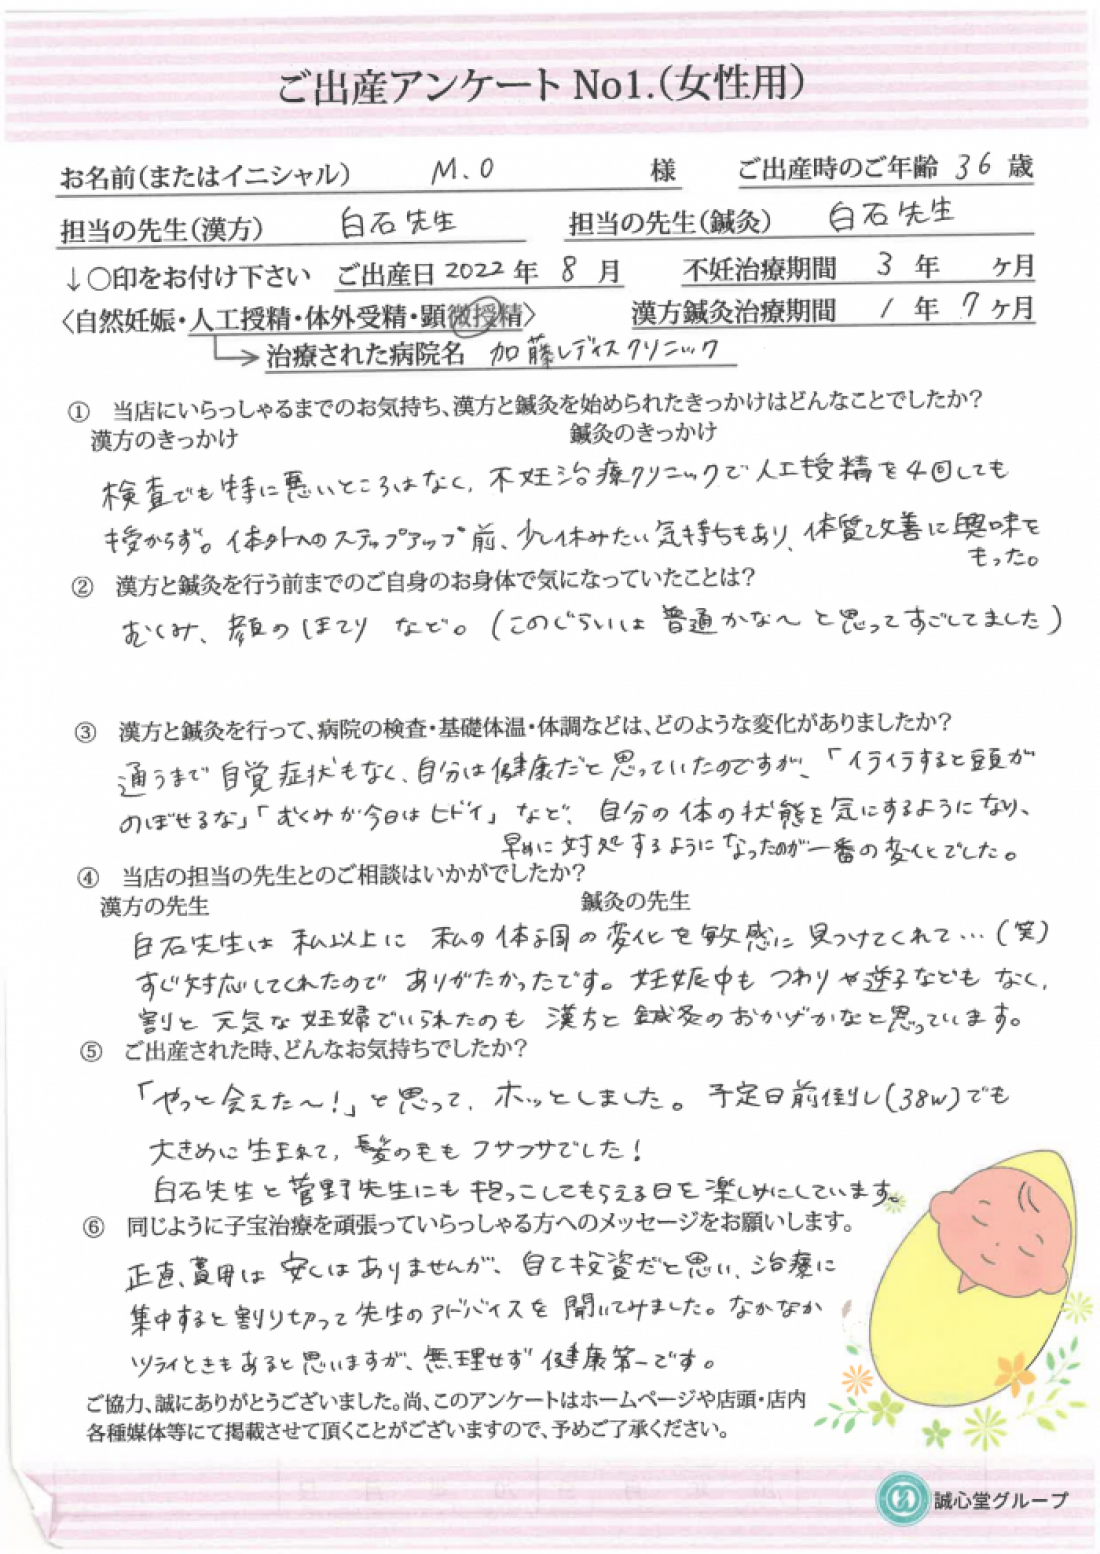 ご出産アンケート No1.(女性用)
お名前(またはイニシャル) M.O 様 ご出産時のご年齢 36 歳
担当の先生(漢方) 白石先生 担当の先生(鍼灸) 白石先生
↓○印をお付け下さい ご出産日 2022 年 8 月 不妊治療期間 3 年 ヶ月
〈自然妊娠・人工授精・体外受精・顕微授精〉 漢方鍼灸治療期間 1 年 7 ヶ月
治療された病院名 加藤レディスクリニック
① 当店にいらっしゃるまでのお気持ち、漢方と鍼灸を始められたきっかけはどんなことでしたか?
漢方のきっかけ 鍼灸のきっかけ
検査でも特に悪いところはなく、不妊治療クリニックで人工授精を4回しても
授からず。体外へのステップアップ前、少し休みたい気持ちもあり、体質改善に興味を
もった。
② 漢方と鍼灸を行う前までのご自身のお身体で気になっていたことは?
むくみ、顔のほてり など。(このぐらいは普通かな〜と思ってすごしてました)
③ 漢方と鍼灸を行って、病院の検査・基礎体温・体調などは、どのような変化がありましたか?
通うまで自覚症状もなく、自分は健康だと思っていたのですが、「イライラすると頭が
のぼせるな」「むくみが今日はヒドイ」など、自分の体の状態を気にするようになり、
早めに対処するようになったのが一番の変化でした。
④ 当店の担当の先生とのご相談はいかがでしたか?
漢方の先生 鍼灸の先生
白石先生は私以上に私の体調の変化を敏感に見つけてくれて…(笑)
すぐ対応してくれたのでありがたかったです。妊娠中もつわりや逆子などもなく、
割と元気な妊婦でいられたのも漢方と鍼灸のおかげかなと思っています。
⑤ ご出産された時、どんなお気持ちでしたか?
「やっと会えた〜!」と思って、ホッとしました。予定日前倒し(38w)でも
大きめに生まれて、髪の毛もフサフサでした!
白石先生と菅野先生にも抱っこしてもらえる日を楽しみにしています。
⑥ 同じように子宝治療を頑張っていらっしゃる方へのメッセージをお願いします。
正直、費用は安くはありませんが、自己投資だと思い、治療に
集中すると割り切って先生のアドバイスを聞いてみました。なかなか
ツライときもあると思いますが、無理せず健康第一です。
ご協力、誠にありがとうございました。尚、このアンケートはホームページや店頭・店内
各種媒体等にて掲載させて頂くことがございますので、予めご了承ください。
誠心堂グループ